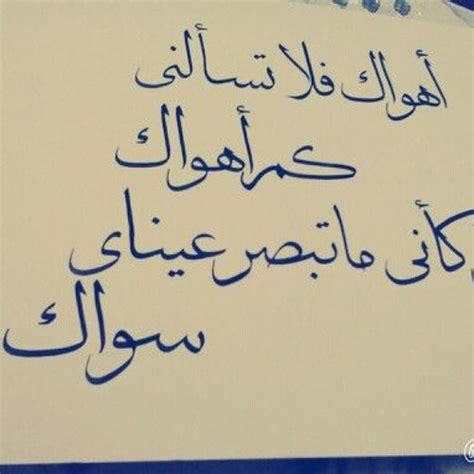 أهواك فلا تسألنى
كم أهواك
كأنى ما تبصر عيناى
سواك